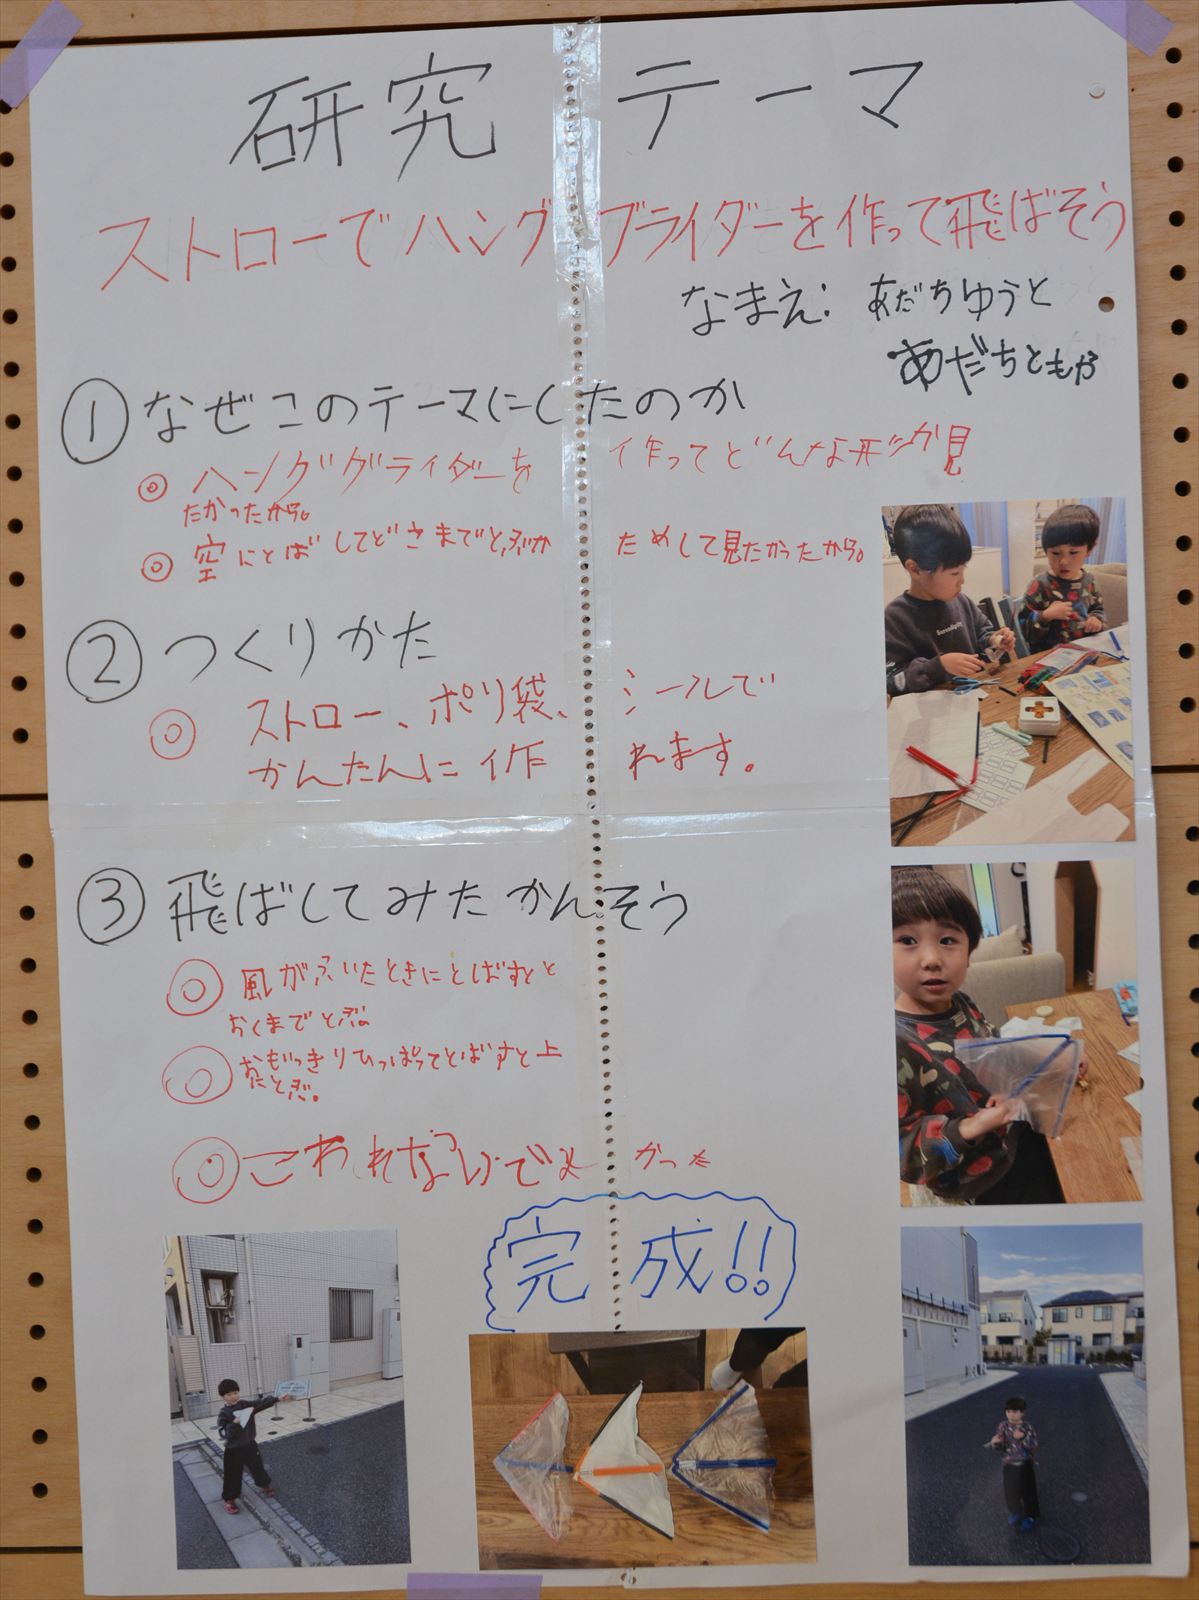 研究テーマ
ストローでハングブライダーを作って飛ばそう
なまえ: あだちゆうと
あだちともや
① なぜこのテーマにしたのか
◎ ハンググライダーを作ってどんな形か見
たかったから。
◎ 空にとばしてどこまでとぶか ためして見たかったから。
② つくりかた
◎ ストロー、ポリ袋、シールで
かんたんに作れます。
③ 飛ばしてみたかんそう
◎ 風がふいたときにとばすと
おくまでとぶ。
◎ おもいっきりひっぱってとばすと上
にとぶ。
◎ こわれないでよかった
完成!!
Serendipity